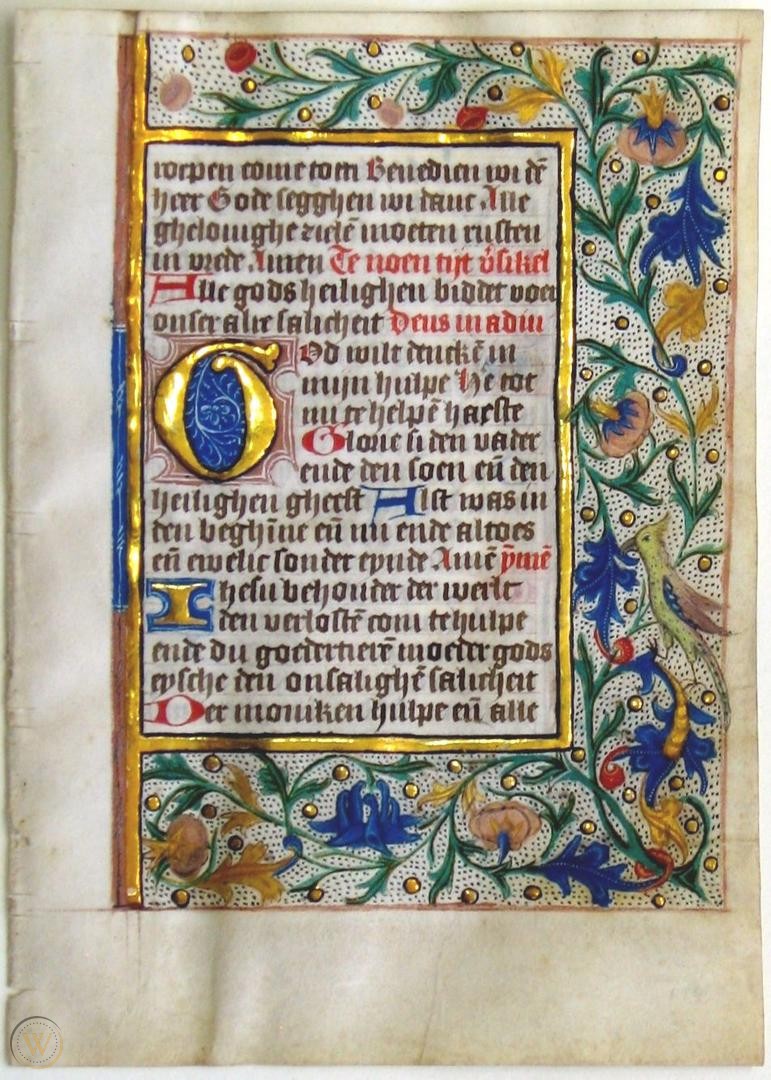 roepen come toen Benedien wi dē
heer Gode segghen wi danc Alle
ghelouighe zielē moeten rusten
in vrede Amen Te noen tijt v̄sikel
Alle gods heilighen biddet voer
onser alre salicheit Deus in adiu
God wilt dencke̅ in
mijn hulpe He tot
mi te helpē haeste
Glorie si den vader
ende den soen en̄ den
heilighen gheest Alst was in
den beghīne en̄ nu ende altoes
en̄ ewelic sonder eynde Amē ȳmē
Ihesu behouder der werlt
den verlostē com te hulpe
ende du goedertierē moeder gods
eysche den onsalighē salicheit
Der moniken hulpe en̄ alle
W